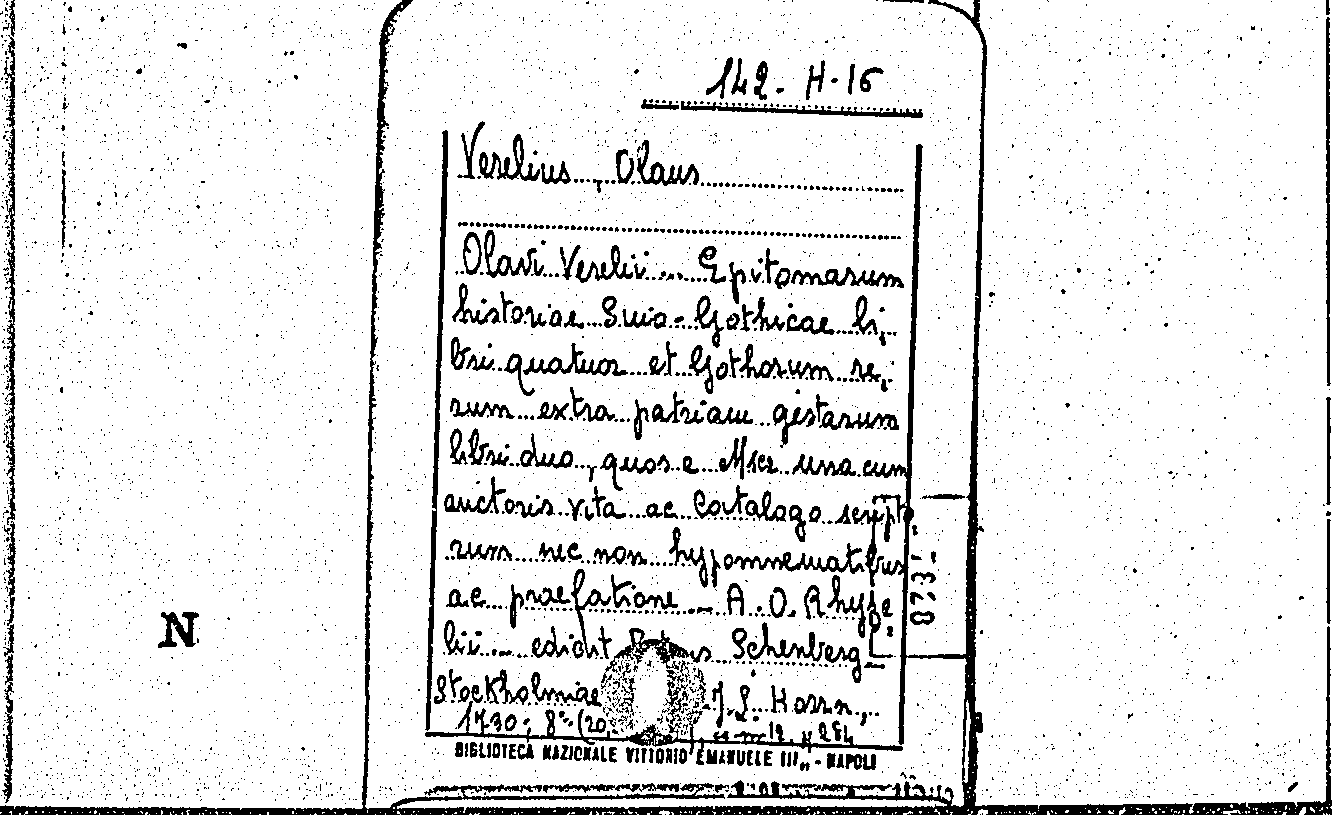 142. H-16
Verelius, Olaus
Olavi Verelii ... Epitomarum
historiae Suio-Gothicae li-
bri quatuor et Gothorum re-
rum extra patriam gestarum
libri duo, quos e Mscr una cum
auctoris vita ac Catalogo scripto
rum nec non hypomnematibus
ac praefatione ... A. O. Rhyze
lii ... edidit Schenberg
Stockholmiae J. L. Horrn,
1730; 8° (20
BIBLIOTECA NAZIONALE VITTORIO EMANUELE III„ - NAPOLI
N